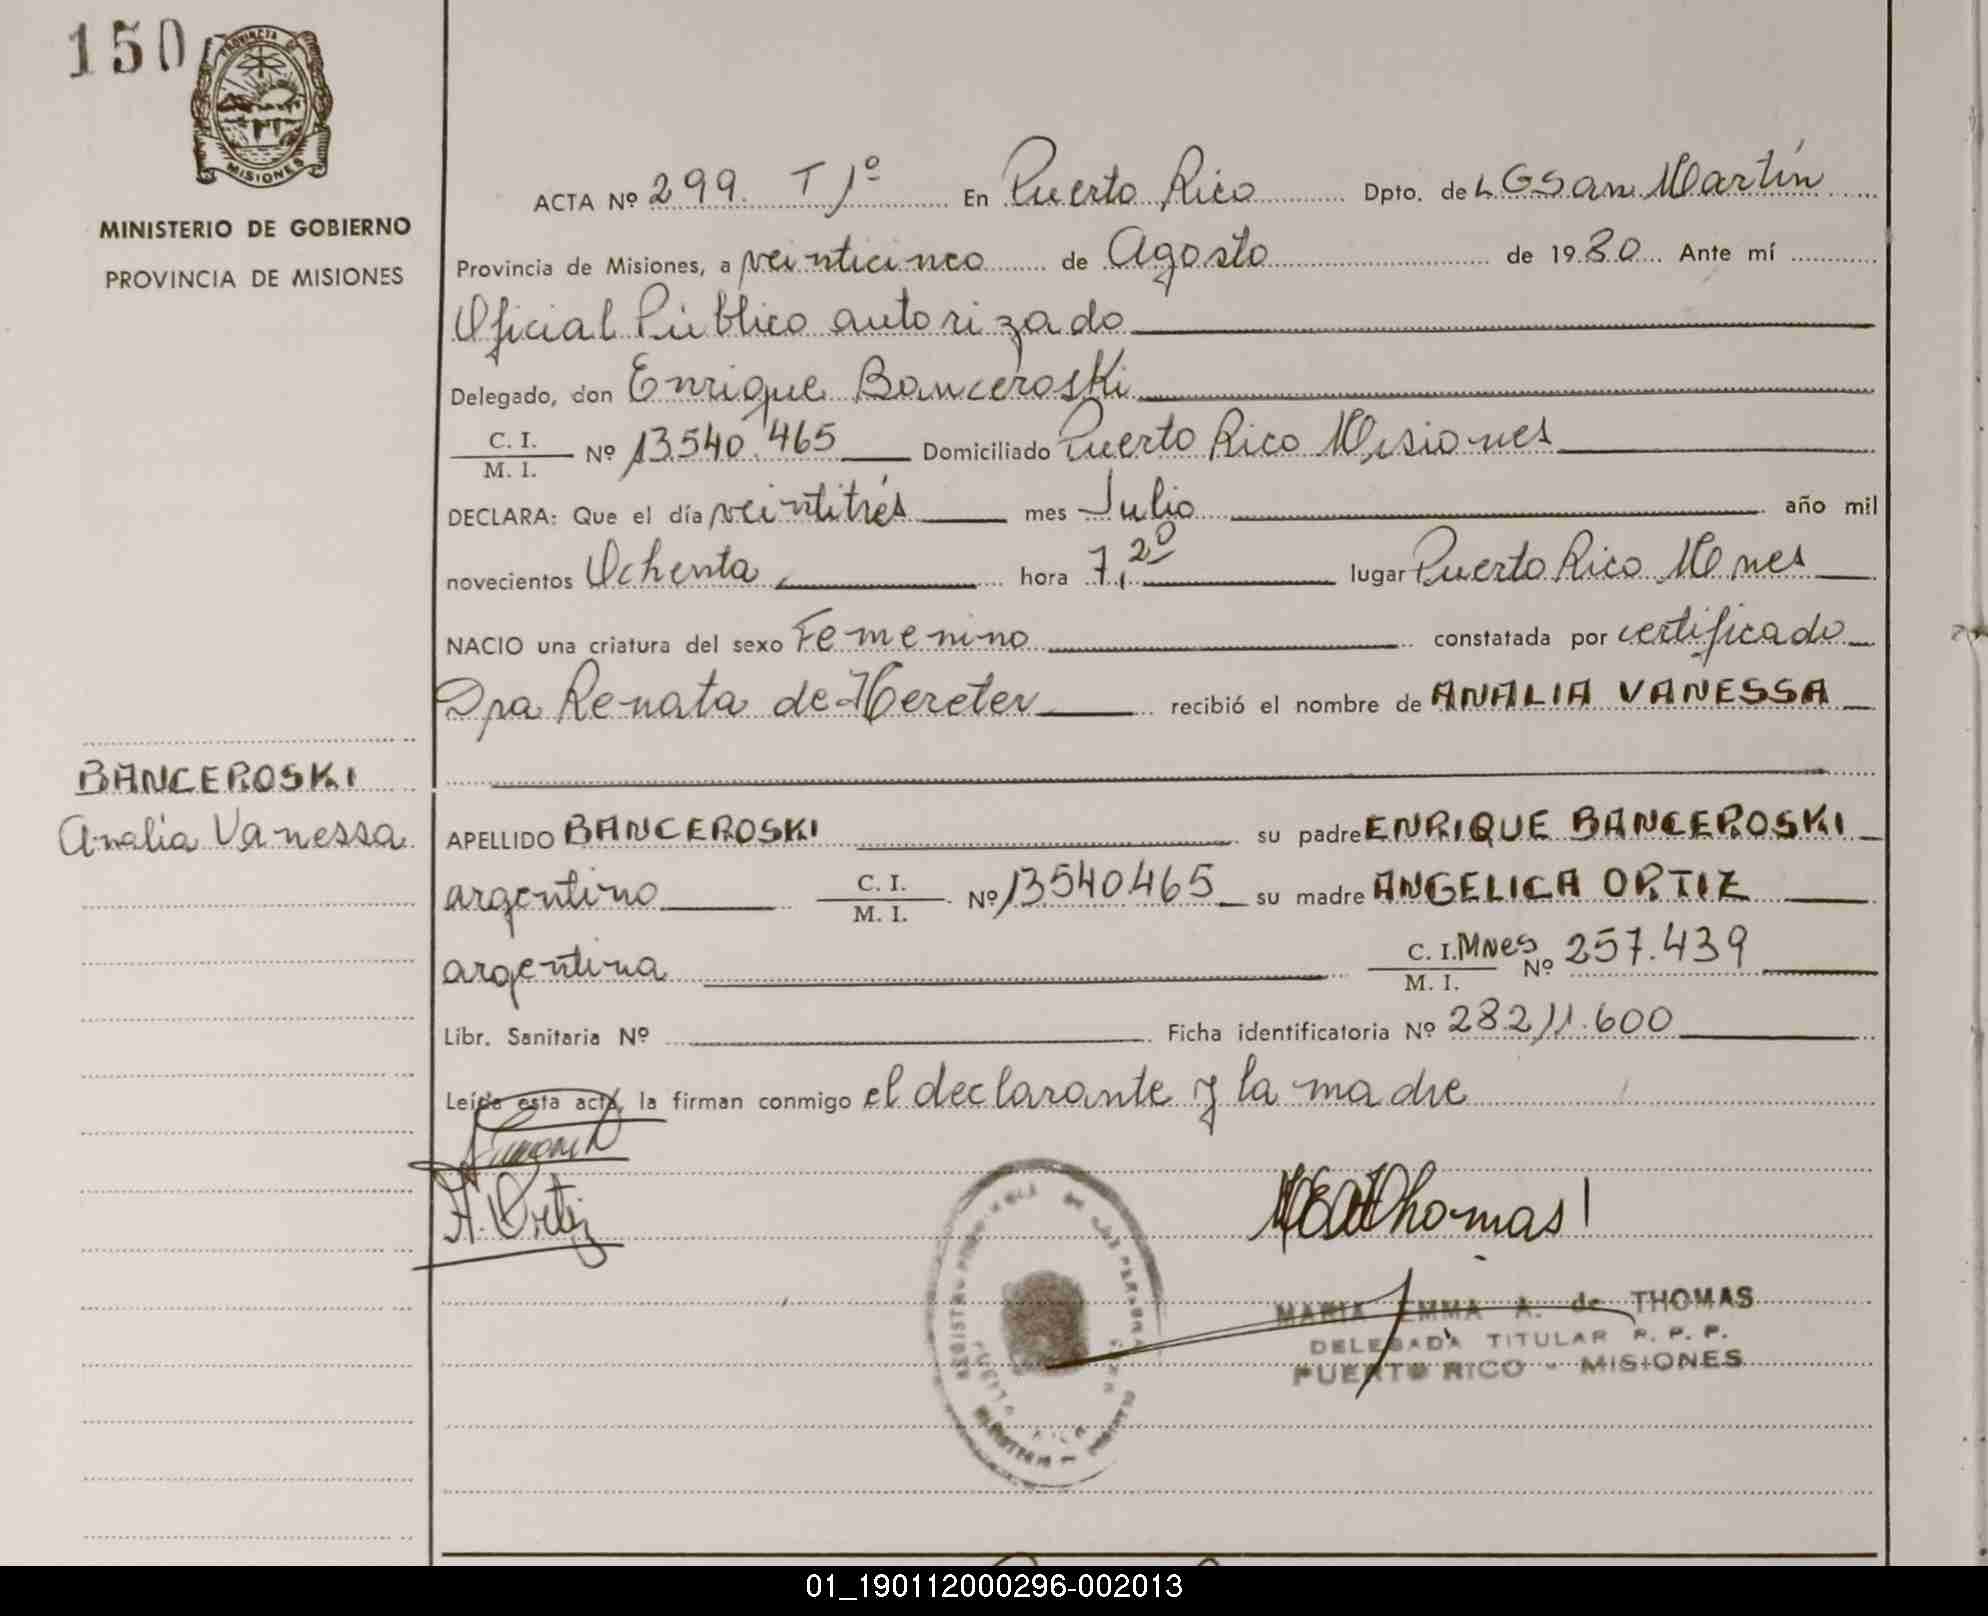 150
PROVINCIA DE
MISIONES
MINISTERIO DE GOBIERNO
PROVINCIA DE MISIONES
ACTA Nº 299. T 1º En Puerto Rico Dpto. de L G San Martín
Provincia de Misiones, a veinticinco de Agosto de 1980 Ante mí
Oficial Público autorizado
Delegado, don Enrique Banceroski
C. I. / M. I. Nº 13540.465 Domiciliado Puerto Rico Misiones
DECLARA: Que el día veintitrés mes Julio año mil
novecientos Ochenta hora 7,20 lugar Puerto Rico Mnes
NACIO una criatura del sexo Femenino constatada por certificado
Dra Renata de Hereter recibió el nombre de ANALIA VANESSA
BANCEROSKI
Analia Vanessa
APELLIDO BANCEROSKI su padre ENRIQUE BANCEROSKI
argentino C. I. / M. I. Nº 13540465 su madre ANGELICA ORTIZ
argentina C. I. Mnes / M. I. Nº 257.439
Libr. Sanitaria Nº Ficha identificatoria Nº 28211.600
Leída esta acta, la firman conmigo el declarante y la madre
A. Ortiz
Thomas
MARIA EMMA A. de THOMAS
DELEGADA TITULAR R. P. P.
PUERTO RICO - MISIONES
01_190112000296-002013